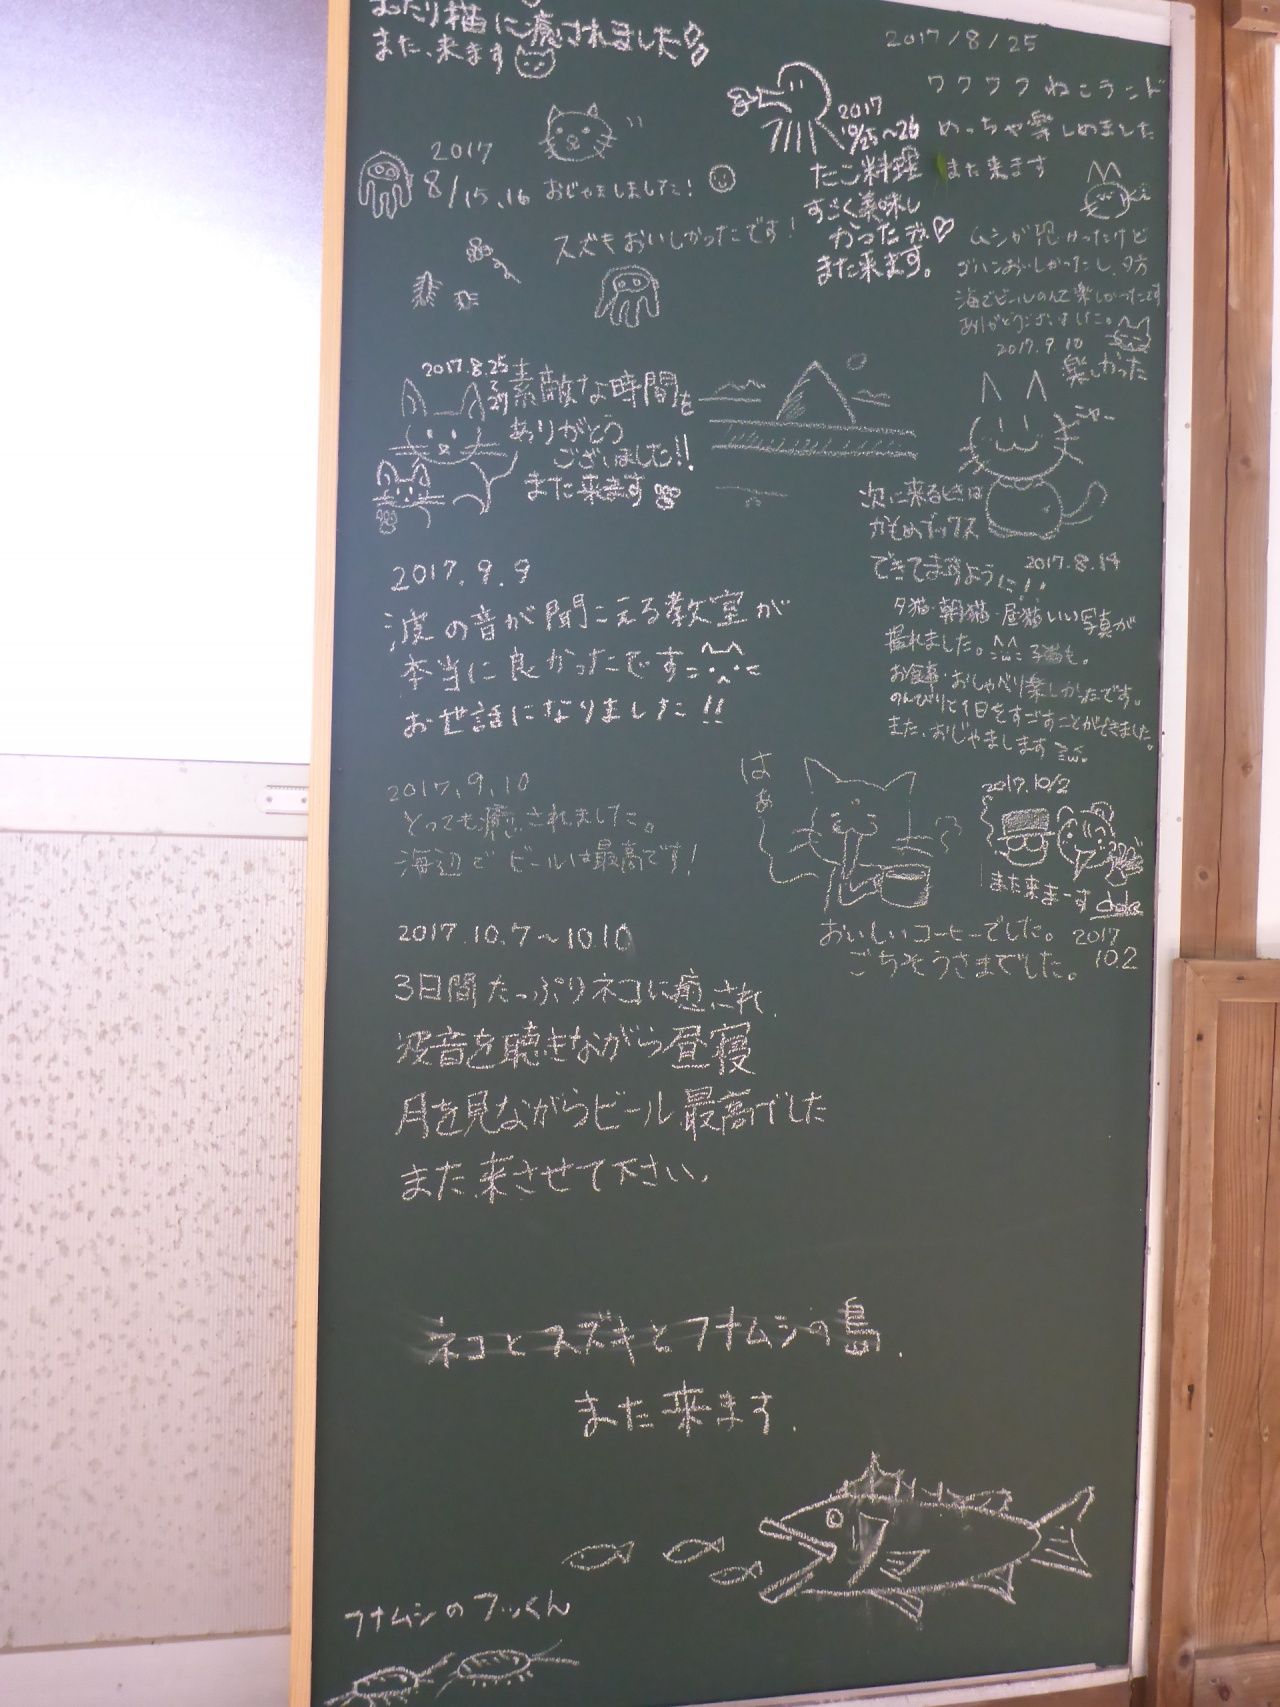 まったり猫に癒されました
また、来ます
2017/8/25
ワクワクねこランド
めっちゃ楽しめました
また来ます
2017
8/15、16 おじゃましました!
スズキおいしかったです!
2017
25~26
たこ料理
すごく美味し
かったデス♡
また来ます。
ムシが恐かったけど
ゴハンおいしかったし、夕方
海でビールのんで楽しかったです
ありがとうございました。
2017.9.10
楽しかった
ニャー
2017.8.25
素敵な時間を
ありがとう
ございました!!
また来ます
次に来るときは
かもめブックス
できてますように!!
2017.8.14
夕猫・朝猫・昼猫いい写真が
撮れました。子猫も。
お食事・おしゃべり楽しかったです。
のんびりと1日をすごすことができました。
また、おじゃまします
2017.9.9
波の音が聞こえる教室が
本当に良かったです
お世話になりました!!
2017.9.10
とっても癒されました。
海辺でビールは最高です!
はぁ〜
2017.10/2
また来まーす
おいしいコーヒーでした。
ごちそうさまでした。
2017
10.2
2017.10.7~10.10
3日間たっぷりネコに癒され、
波音を聴きながら昼寝
月を見ながらビール最高でした
また、来させて下さい。
ネコとスズキとフナムシの島.
また来ます.
フナムシのフッくん